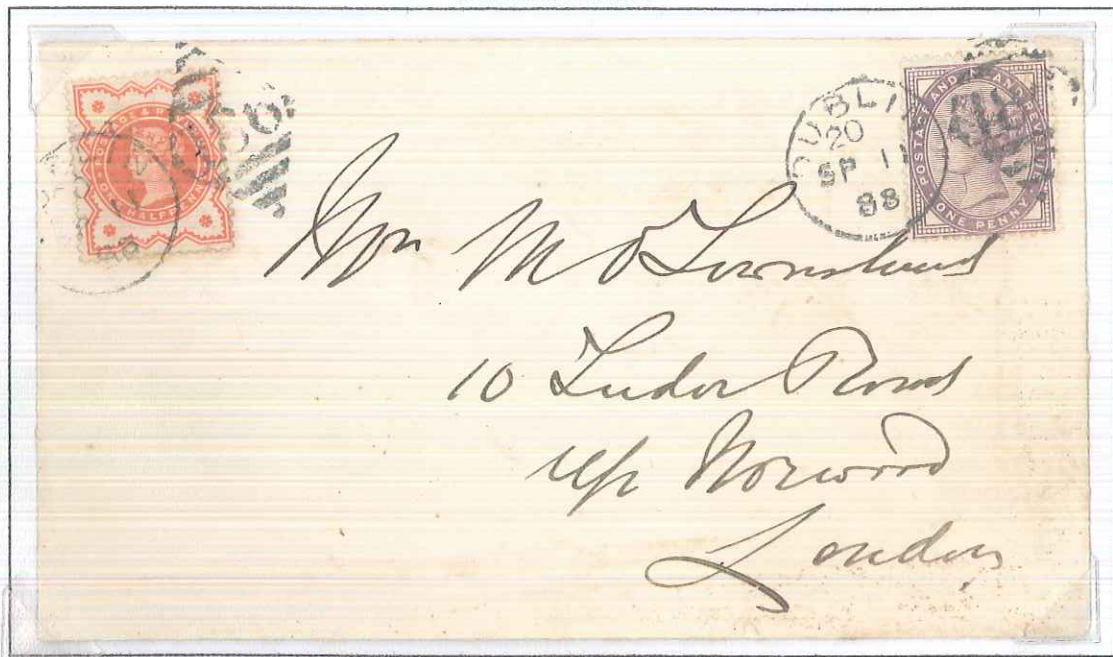 POSTAGE & REVENUE
ONE HALFPENNY
DUBLIN
20
SP 11
88
POSTAGE AND INLAND REVENUE
ONE PENNY
M
10 Tudor Road
Norwood
London